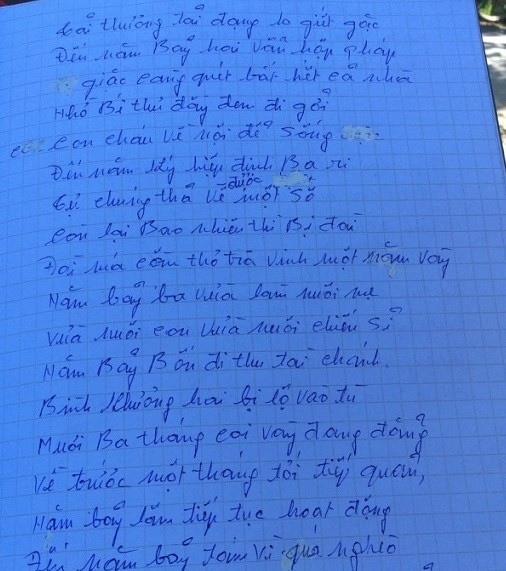 Cải thưởng tải đạng lo giết gặc
Đến năm Bảy hai vẫn hợp pháp
giặc càng quét bắt hết cả nhà
Nhỏ Bí thư đây đem đi gởi
con cháu về nội để sống
Đến năm ký hiệp định Ba ri
Gự chúng thả về được một số
còn lại Bao nhiêu thì Bị đài
Đài má cẩm thỏ trà vinh một năm vay
Năm bảy ba vừa làm nuôi mẹ
vừa nuôi con vừa nuôi chiến sĩ
Năm Bảy Bốn đi thu tài chánh.
Bình khưởng hai bị lộ vào tù
Mười Ba tháng coi vay đang đông
về trước một tháng tới tiếp quản,
Năm bảy lăm tiếp tục hoạt động
Đến năm bảy tám vì quá nghèo